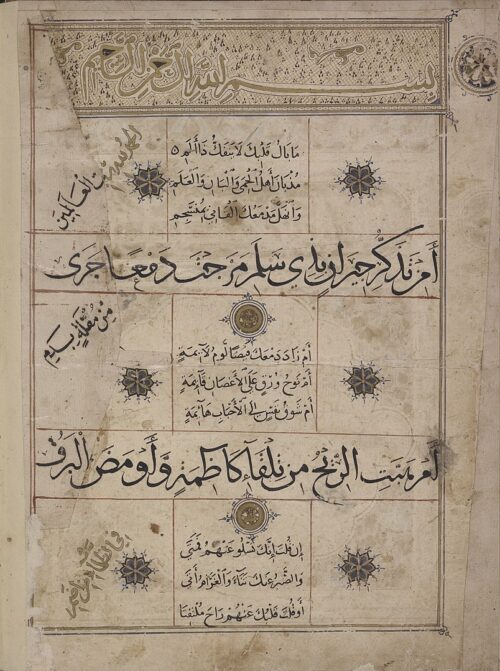 بسم الله الرحمن الرحيم
الحمد لله رب العالمين
ما بال قلبك لا ينفك ذا ألم
مذ بان أهل الحمى والبان والعلم
وانهل مدمعك القاني بمنسجم
أمن تذكر جيران بذي سلم مزجت دمعا جرى
من مقلة بدم
أم زاد دمعك فيضا لوم لائمة
أم نوح ورق على الأغصان قائمة
أم شوق نفس إلى الأحباب هائمة
أم هبت الريح من تلقاء كاظمة وأومض البرق
في الظلماء من إضم
إن قلت إنك تسلو عنهم فمتى
والضر عنك والغرام أتى
أو قلت قلبك عنهم راح ملتفتا